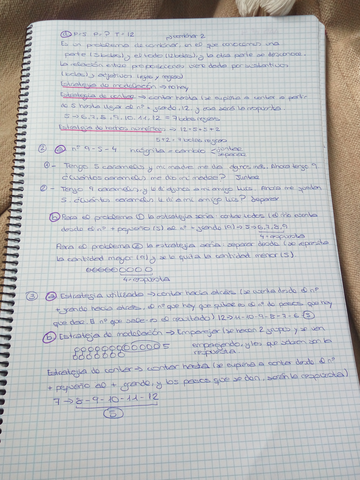 ① P=5 P=? T=12 parámetro 2
Es un problema de combinar, en el que conocemos una
parte (5 bolas), y el todo (12 bolas), y la otra parte se desconoce.
La relación entre proposiciones verbales por sustantivos
(bolas), y adjetivos (rojas y negras)
Estrategia de modelación → no hay
Estrategia de conteo → contar hasta (se empieza a contar a partir
de 5 hasta llegar al nº + grande, 12, y esa será la respuesta
5 → 6, 7, 8, 9, 10, 11, 12 = 7 bolas negras
Estrategia de hechos numéricos → 12 = 5 + 5 + 2
5+2 = 7 bolas negras
② ⓐ nº 9 - 5 - 4 incógnita = cambio juntar separar
①- Tengo 5 caramelos, y mi madre me da algunos más. Ahora tengo 9
¿Cuántos caramelos me dio mi madre? Juntar
②- Tengo 9 caramelos, y le di algunos a mi amigo Luis. Ahora me quedan
5. ¿Cuántos caramelos le di a mi amigo Luis? Separar
ⓑ Para el problema ① la estrategia sería contar todos (el nº
desde el nº + pequeño (5) al nº + grande (9) → 5 → 6, 7, 8, 9
4 = respuesta
Para el problema ② la estrategia sería separar desde (se representa
la cantidad mayor (9) y se le quita la cantidad menor (5)
4 = respuesta
③ ⓐ Estrategia utilizada → contar hacia atrás (se cuenta desde el nº
+ grande hacia atrás, el nº que hay que quitar es el nº de pasos que hay
que dar. El nº que sale es el resultado) 12 → 11 - 10 - 9 - 8 - 7 - 6 ⑤
ⓑ Estrategia de modelación → Emparejar (se hacen 2 grupos y se van
emparejando, y los que sobren son la
respuesta
Estrategia de conteo → contar hasta (se empieza a contar desde el nº
+ pequeño al + grande, y los pasos que se dan, serán la respuesta)
7 → 8 - 9 - 10 - 11 - 12
⑤